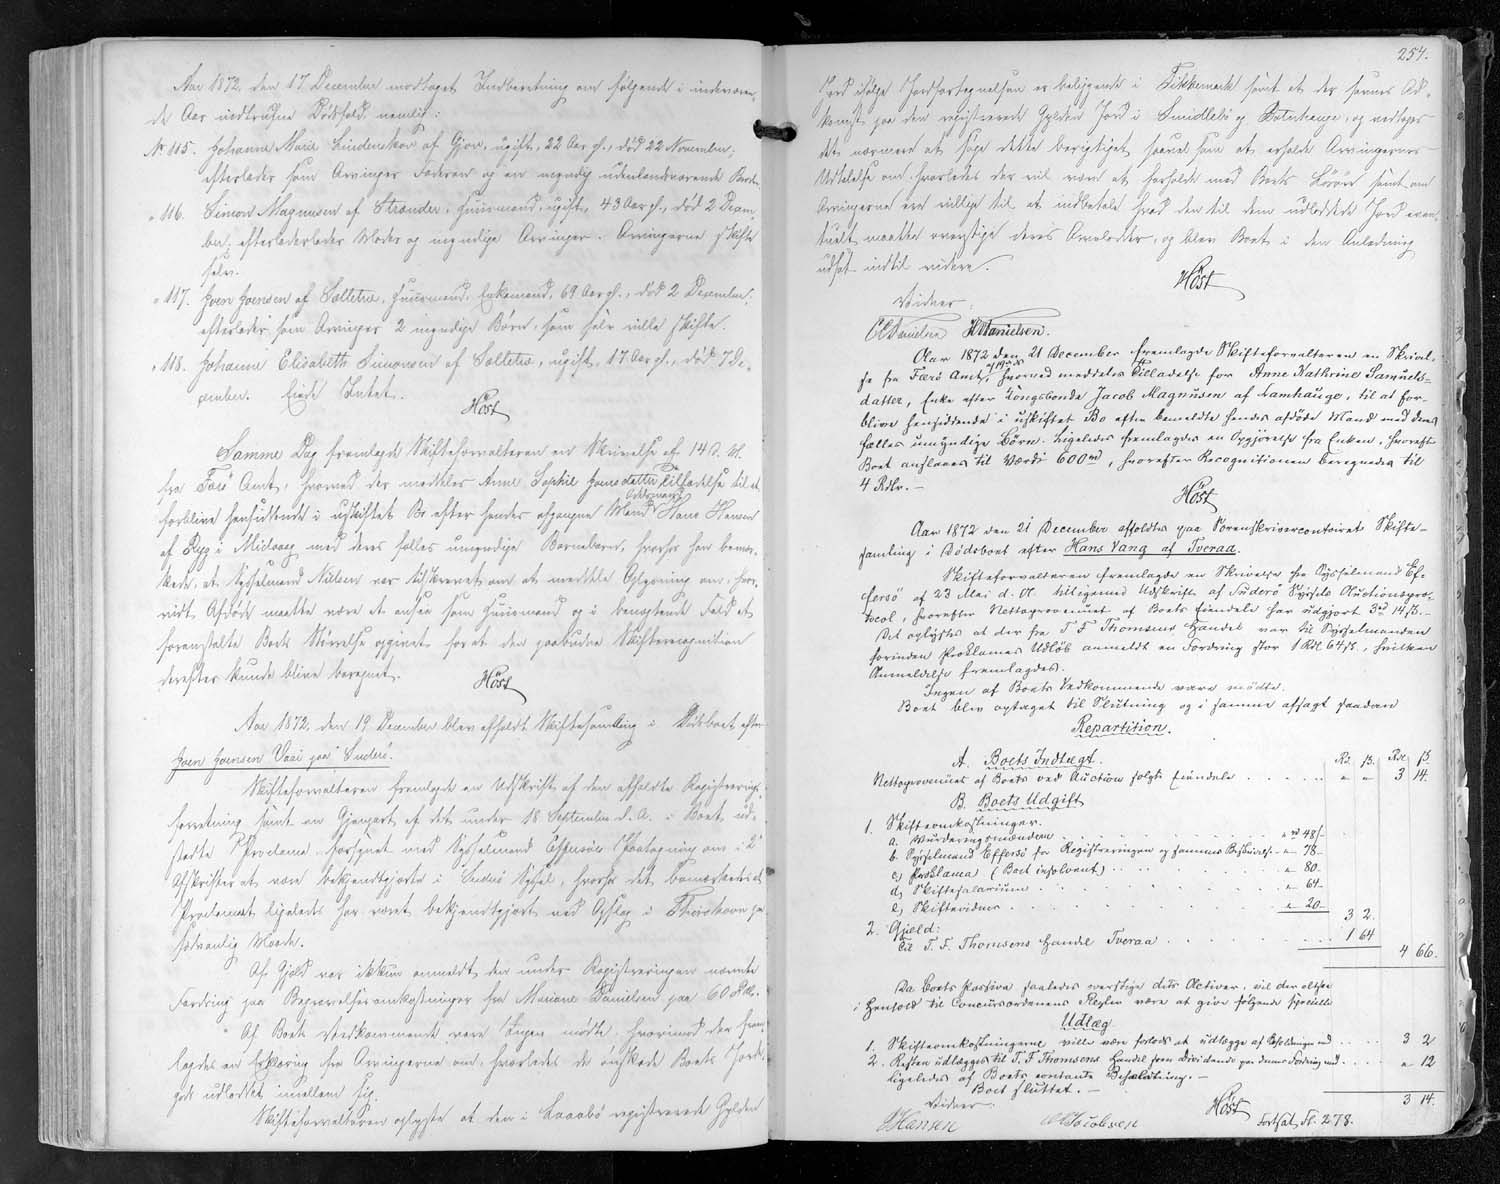 Aar 1872, den 17 December modtaget Indberetning om følgende i indeværen-
de Aar indtrufne Dødsfald, nemlig:
№ 115. Johanne Marie Lindenskov af Gjov, ugift, 22 Aar gl., død 22 November;
efterlader som Arvinger Faderen og en myndig udenlandsværende Broder.
" 116. Simon Magnussen af Strænder, Huusmand, ugift, 43 Aar gl., død 2 Decem-
ber; efterladerlader Moder og myndige Arvinger. Arvingerne skifte
selv.
" 117. Joen Joensen af Selletræ, Huusmand, Enkemand, 69 Aar gl., død 2 December;
efterlader som Arvinger 2 myndige Børn, som selv ville skifte.
" 118. Johanne Elisabeth Simonsen af Selletræ, ugift, 17 Aar gl., død 7 De-
cember. Eiede Intet.
Høst
Samme Dag fremlagde Skifteforvalteren en Skrivelse af 14 d. M.
fra Færø Amt, hvorved der meddeles Anne Sophie Joensdatter Tilladelse til at
forblive hensiddende i uskiftet Bo efter hendes afgangne Mand Odelsmand Hans Hansen
af Ryg i Midvaag med deres fælles umyndige Barnebarn, hvorfor han bemær-
kede, at Sysselmand Nielsen var tilskrevet om at meddele Oplysning om, hvor-
vidt Afdøde maatte være at ansee som Huusmand og i benægtende Fald at
foranstalte Boets Størrelse opgivet for at den paabudne Skifterecognition
derefter kunde blive beregnet.
Høst
Aar 1872, den 19 December blev afholdt Skiftesamling i Dødsboet efter
Joen Joensen Vaai paa Suderø.
Skifteforvalteren fremlagde en Udskrift af den afholdte Registrerings-
forretning samt en Gjenpart af det under 18 September d. A. i Boet ud-
stedte Proclama forsynet med Sysselmand Effersøes Paategning om i 2
Afskrifter at være bekjendtgjorte i Suderø Syssel, hvorfor det bemærkedes at
Proclamaet ligeledes har været bekjendtgjort ved Opslag i Thorshavn paa
sædvanlig Maade.
Af Gjæld var ikkun anmeldt den under Registreringen nævnte
Fordring paa Begravelsesomkostninger fra Mariane Danielsen paa 60 Rdlr.
Af Boets Vedkommende vare Ingen mødte, hvorimod der frem-
lagdes en Erklæring fra Arvingerne om, hvorledes de ønskede Boets Jorde-
gods udloddet imellem sig.
Skifteforvalteren oplyste at den i Laaabø registrerede Gylden
254.
Jord ifølge Jordfortegnelsen er beliggende i samt at der savnes Ad-
komst paa den registrerede Gylden Jord i og og vedtoges
det nærmere at søge dette berigtiget saavel som at erholde Arvingernes
Udtalelse om, hvorledes der vil være at forholde med Boets Løsøre samt om
Arvingerne ere villige til at indbetale hvad den til dem udloddede Jord even-
tuelt maatte overstige deres Arvelodder, og blev Boet i den Anledning
udsat indtil videre.
Høst
Vidner.
Danielsen H Danielsen.
Aar 1872 den 21 December fremlagde Skifteforvalteren en Skrivel-
se fra Færø Amt, hvorved meddeles Tilladelse for Anne Kathrine Samuels-
datter, Enke efter Kongsbonde Jacob Magnussen af Lamhauge, til at for-
blive hensiddende i uskiftet Bo efter bemeldte hendes afdøde Mand med deres
fælles umyndige Børn. Ligeledes fremlagdes en Opgjørelse fra Enken, hvorefter
Boet anslaaes til Værdi 600 rd, hvorefter Recognitionen beregnedes til
4 Rdlr. —
Høst
Aar 1872 den 21 December afholdtes paa Sorenskrivercontoiret Skifte-
samling i Dødsboet efter Hans Vang af Tveraa.
Skifteforvalteren fremlagde en Skrivelse fra Sysselmand Ef-
fersö af 23 Mai d. A. tilligemed Udskrift af Suderö Syssels Auctionspro-
tocol, hvorefter Nettoprovenuet af Boets Eiendele har udgjort 3 rd 14 β. —
Det oplystes at der fra T. F. Thomsens Handel var til Sysselmanden
forinden Proklamas Udløb anmeldt en Fordring stor 1 Rdl 64 β., hvilken
Anmeldelse fremlagdes.
Ingen af Boets Vedkommende vare mødte.
Boet blev optaget til Slutning og i samme afsagt saadan
Repartition.
A. Boets Indtægt. Rd. β. Rdl β
Nettoprovenuet af Boets ved Auction solgte Eiendele " " 3 14.
B. Boets Udgift
1. Skifteomkostninger.
a. Vurderingsmændene " rd 48 β
b. Sysselmand Effersö for Registreringen og sammes Beskrivelse " 78 -
c) Proklama (Boet insolvent) " 80 -
d) Skiftesalarium " 64 -
e) Skiftevidner " 20 -
3 2.
2. Gjeld:
til T. F. Thomsens Handel Tveraa 1 64
4 66.
Da Boets Passiva saaledes overstige dets Activer, vil der altsaa
i Henhold til Concursordenens Regler være at give følgende specielle
Udlæg
1. Skifteomkostningerne ville være forlods at udlægge af Beholdningen med 3 2
2. Resten udlægges til T. F. Thomsens Handel som Dividende paa dennes Fordring med " 12
ligeledes af Boets contante Beholdning. —
Boet sluttet. —
3 14.
Vidner
Høst
Hansen Jacobsen
Fortsat Fl. 278.